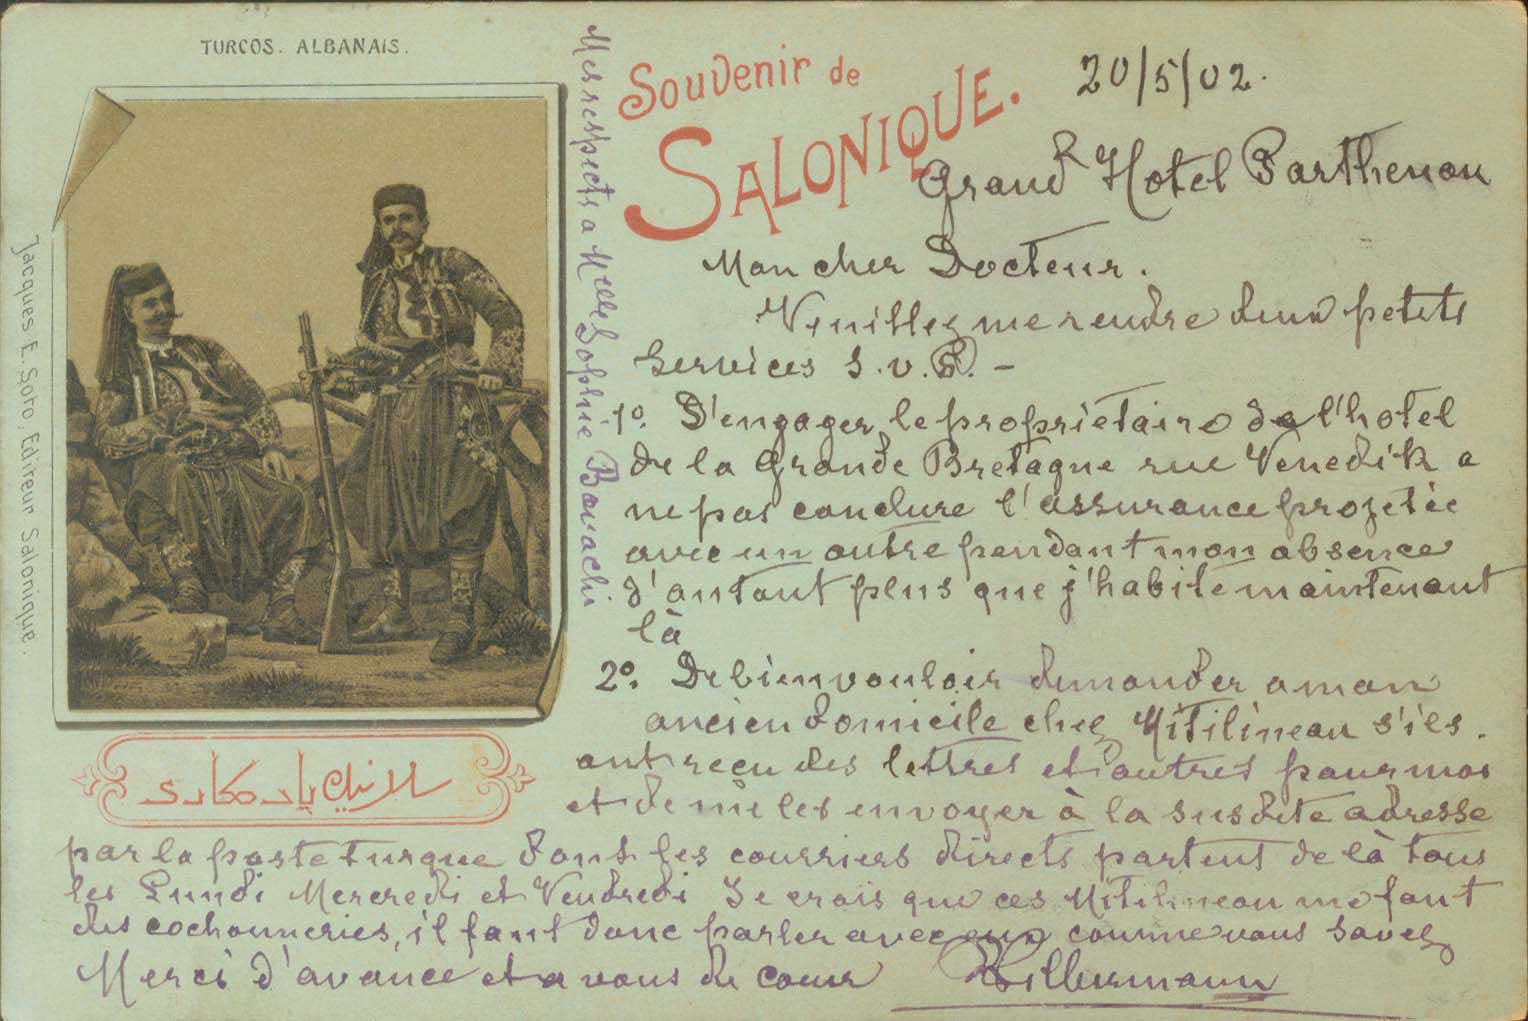 TURCOS. ALBANAIS.
Jacques E. Soto, Editeur Salonique.
Souvenir de
SALONIQUE.
سلانيك يادكارى
20/5/02.
Grand Hotel Parthenon
Mon cher Docteur.
Veuillez me rendre deux petits
services S.v.P. –
1º. D'engager le propriétaire de l'hotel
de la Grande Bretagne rue Venedik a
ne pas conclure l'assurance projetée
avec un autre pendant mon absence
d'autant plus que j'habite maintenant
là
2º. De bien vouloir demander a mon
ancien domicile chez Mitilineau s'ils
ont reçu des lettres et autres pour moi
et de me les envoyer à la susdite adresse
par la poste turque dont les courriers directs partent de là tous
les Lundi Mercredi et Vendredi Je crois que ces Mitilineau me font
des cochonneries, il faut donc parler avec eux comme vous savez
Merci d'avance et a vous de coeur
Mes respects a Melle Sophie